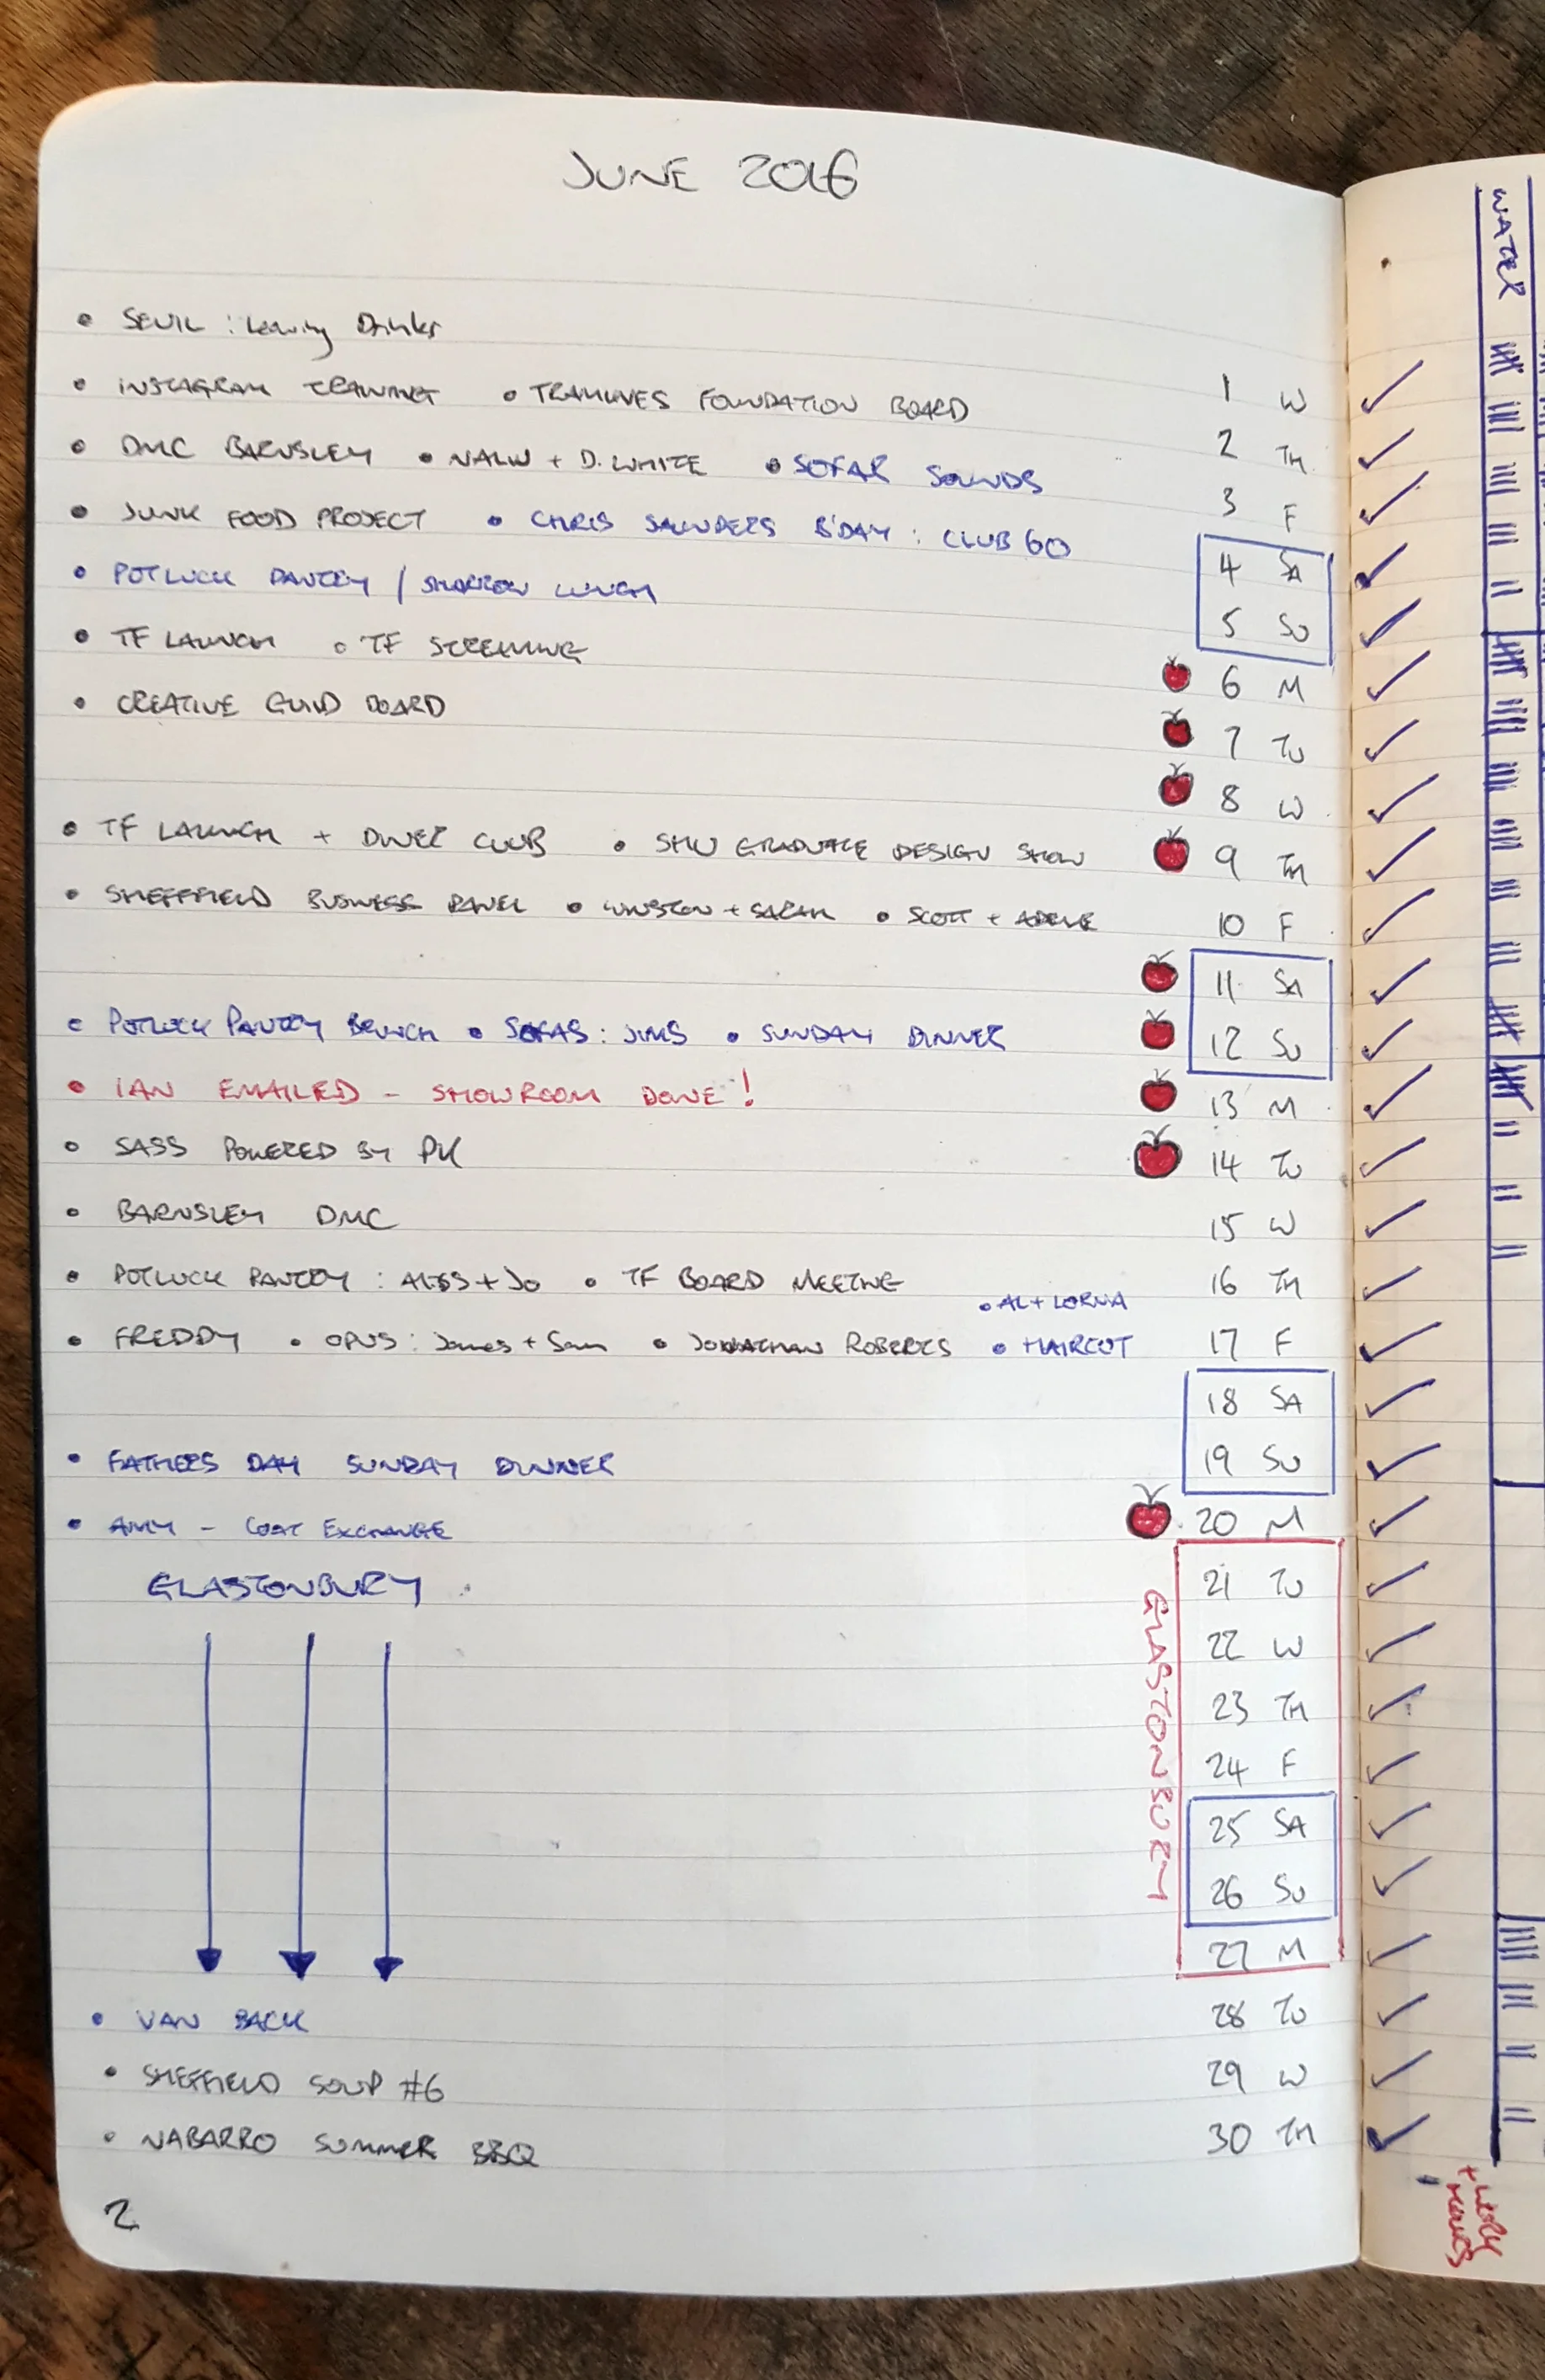 JUNE 2016
• SEVIL : Leaving Drinks
• INSTAGRAM TRAINING • TRAMLINES FOUNDATION BOARD 1 W
• DMC BARNSLEY • + D. WHITE • SOFAR SOUNDS 2 TH
• JUNK FOOD PROJECT • CHRIS SAUNDERS B'DAY : CLUB 60 3 F
• POTLUCK PANTRY / SHARROW LUNCH 4 SA
• TF LAUNCH • TF SCREENING 5 SU
6 M
• CREATIVE GUILD BOARD 7 TU
8 W
• TF LAUNCH + DINER CLUB • SHU GRADUATE DESIGN SHOW 9 TH
• SHEFFIELD BUSINESS PANEL • WINSTON + SARAH • SCOTT + ADELE 10 F
11 SA
• POTLUCK PANTRY BRUNCH • SOFAS : JIMS • SUNDAY DINNER 12 SU
• IAN EMAILED - SHOWROOM DONE! 13 M
• SASS POWERED BY PK 14 TU
• BARNSLEY DMC 15 W
• POTLUCK PANTRY : + JO • TF BOARD MEETING 16 TH
• AL + LORNA
• FREDDY • OPUS : James + Sam • JONATHAN ROBERTS • HAIRCUT 17 F
18 SA
• FATHERS DAY SUNDAY DINNER 19 SU
• AMY - COAT EXCHANGE 20 M
GLASTONBURY 21 TU
GLASTONBURY
22 W
23 TH
24 F
25 SA
26 SU
27 M
• VAN BACK 28 TU
• SHEFFIELD SOUP #6 29 W
• NABARRO SUMMER BBQ 30 TH
2
WATER
+ WORK